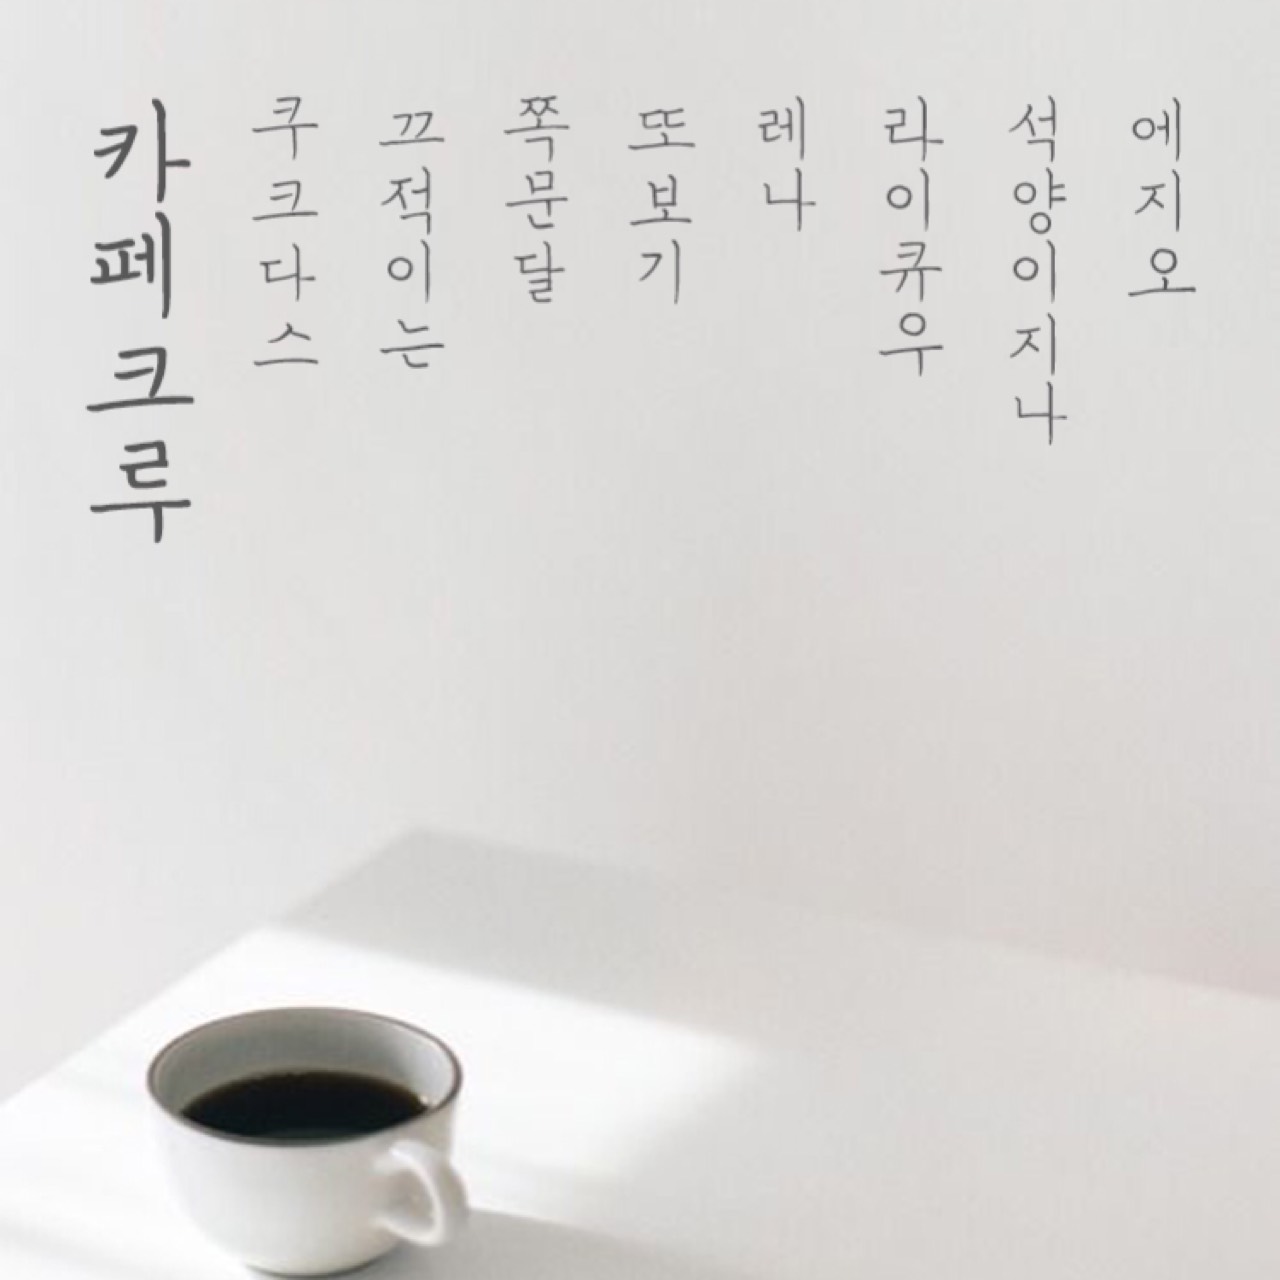 카페크루
쿠크다스
끄적이는
쪽문달
또보기
레나
라이큐우
석양이지나
에지오